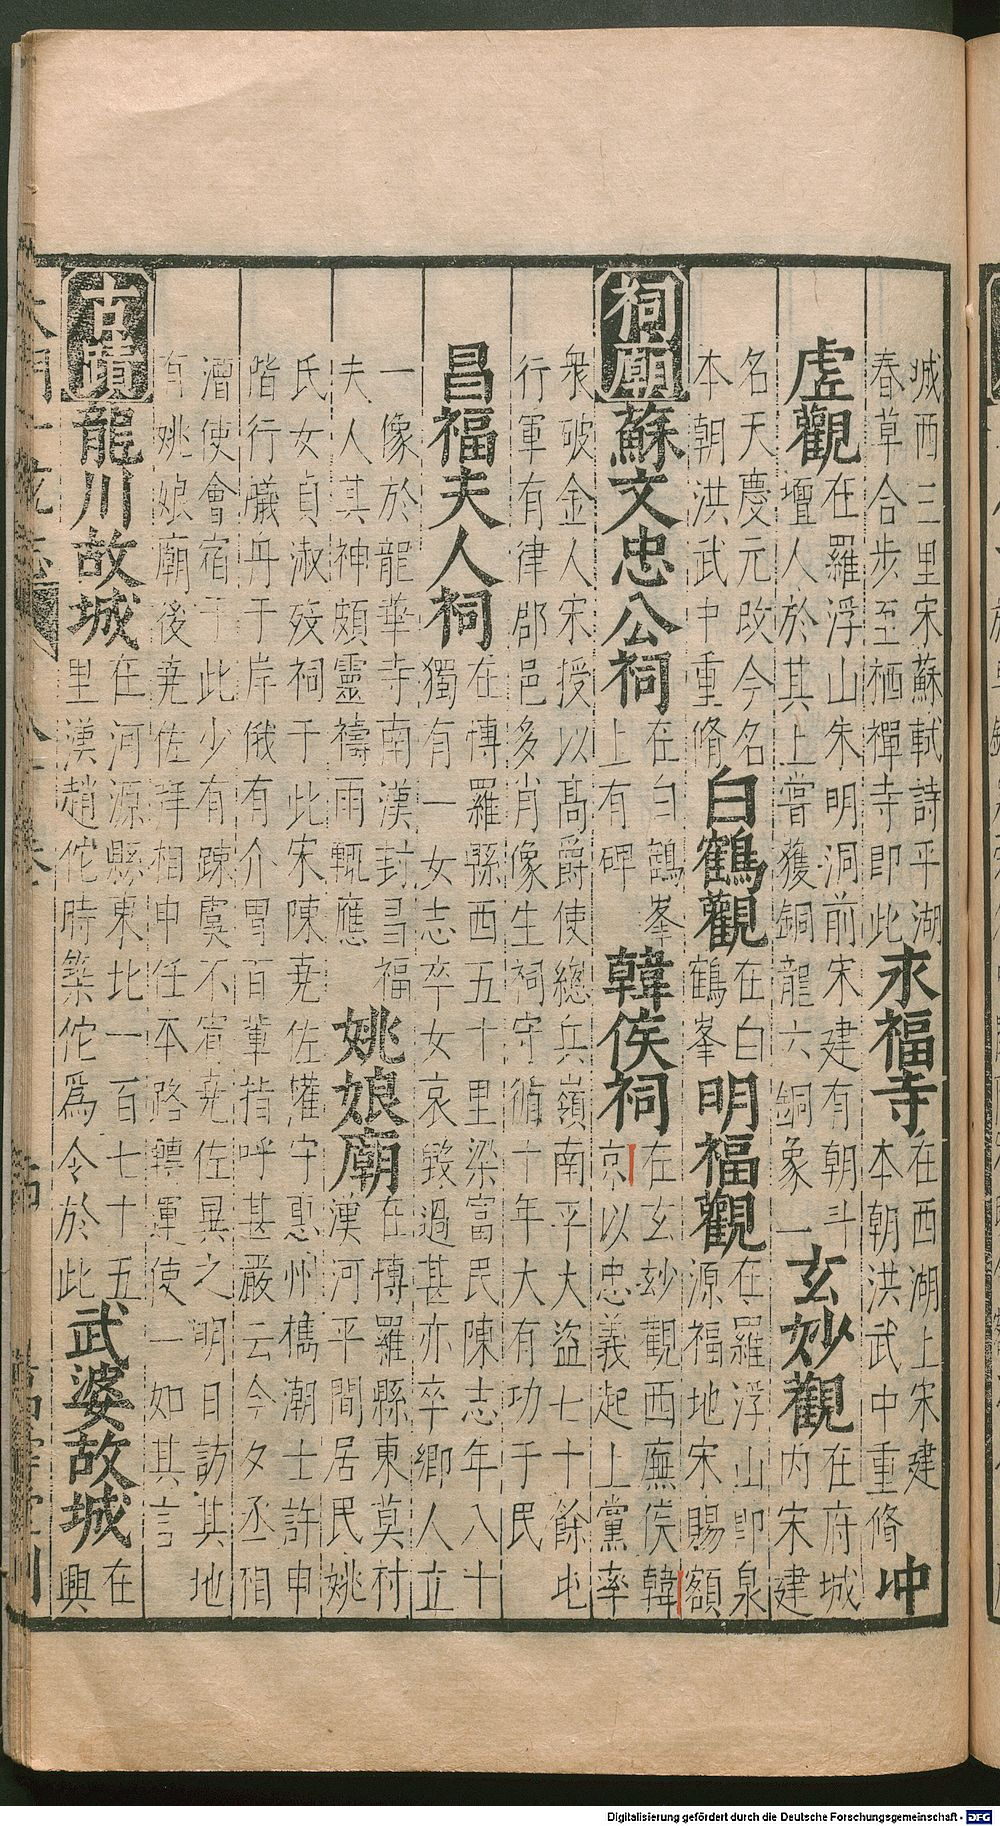 城西三里宋蘇軾詩平湖春草合步至栖禪寺即此永福寺在西湖上宋建本朝洪武中重脩冲
虛觀在羅浮山朱明洞前宋建有朝斗壇人於其上嘗獲銅龍六銅象一玄妙觀在府城内宋建
名天慶元改今名本朝洪武中重脩白鶴觀在白鶴峯明福觀在羅浮山即泉源福地宋賜額
祠廟蘇文忠公祠在白鶴峯上有碑韓侯祠在玄玅觀西廡侯韓京以忠義起上黨率
衆破金人宋授以高爵使總兵嶺南平大盜七十餘屯行軍有律郡邑多肖像生祠守循十年大有功于民
昌福夫人祠在博羅縣西五十里梁富民陳志年八十獨有一女志卒女哀毀過甚亦卒鄉人立
一像於龍華寺南漢封昌福夫人其神頗靈禱雨輒應姚娘廟在博羅縣東莫村漢河平間居民姚
氏女貞淑歿祠于此宋陳堯佐攉守惠州檇潮士許申皆行艤丹于岸俄有介冑百輩指呼甚嚴云今夕丞相
漕使會宿于此少有踈虞不宥堯佐異之明日訪其地有姚娘廟後堯佐拜相申任本路轉運使一如其言
古蹟龍川故城在河源縣東北一百七十五里漢趙佗時築佗爲令於此武婆故城在興